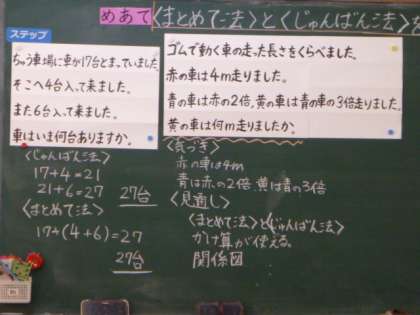 めあて〈まとめて法〉と〈じゅんばん法〉を
ステップ
ちゅう車場に車が17台とまっていました。
そこへ4台入って来ました。
また6台入って来ました。
車はいま何台ありますか。
〈じゅんばん法〉
17+4=21
21+6=27 27台
〈まとめて法〉
17+(4+6)=27
27台
ゴムで動く車の走った長さをくらべました。
赤の車は4m走りました。
青の車は赤の2倍、黄の車は青の車の3倍走りました。
黄の車は何m走りましたか。
〈気づき〉
赤の車は4m
青は赤の2倍 黄は青の3倍
〈見通し〉
〈まとめて法〉と〈じゅんばん法〉
かけ算が使える。
関係図